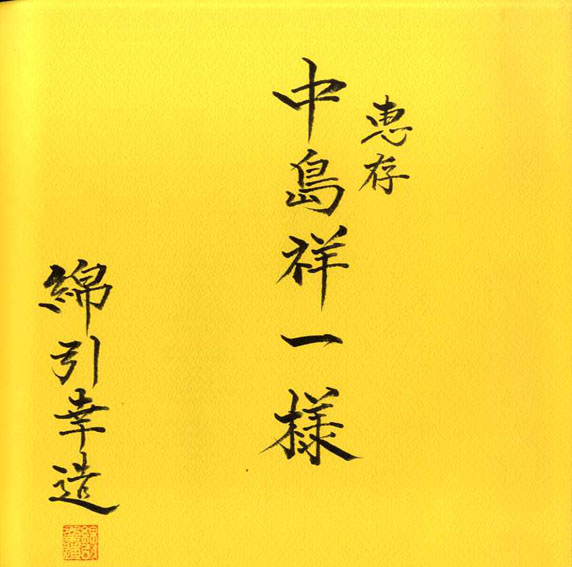 恵存
中島祥一様
綿引幸造